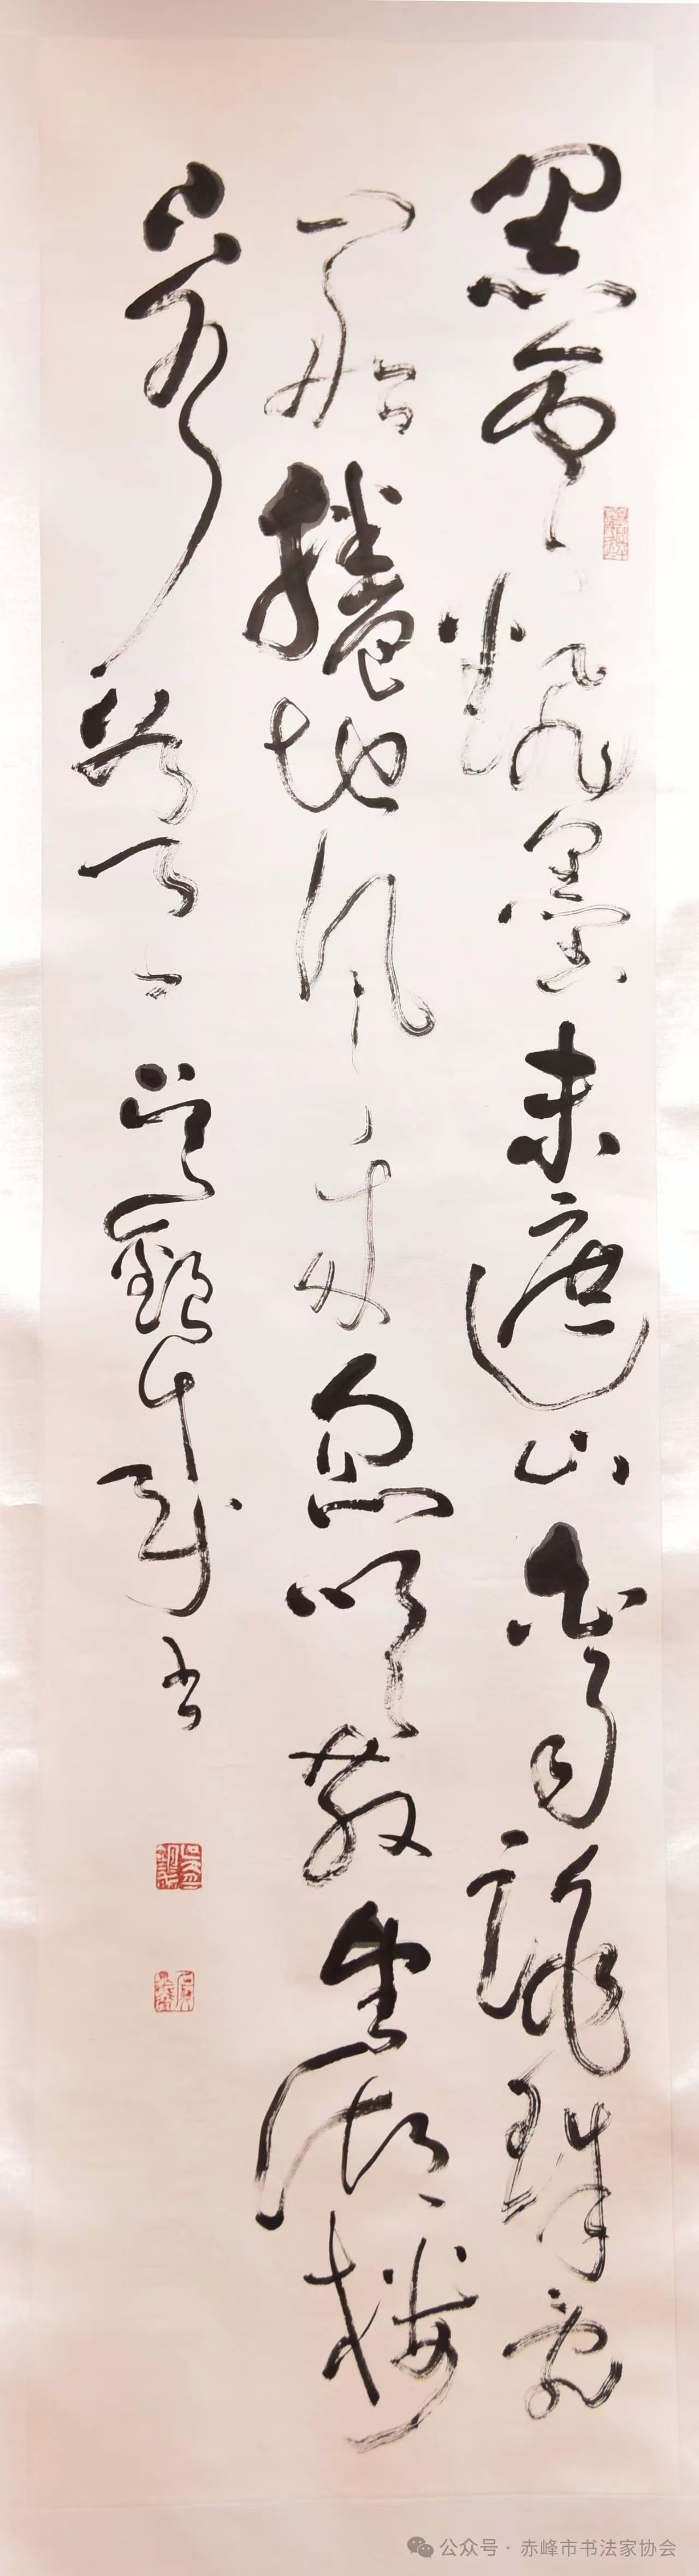 黑云翻墨未遮山白雨跳珠乱
入船卷地风来忽吹散望湖楼
下水如天
书
公众号 · 赤峰市书法家协会